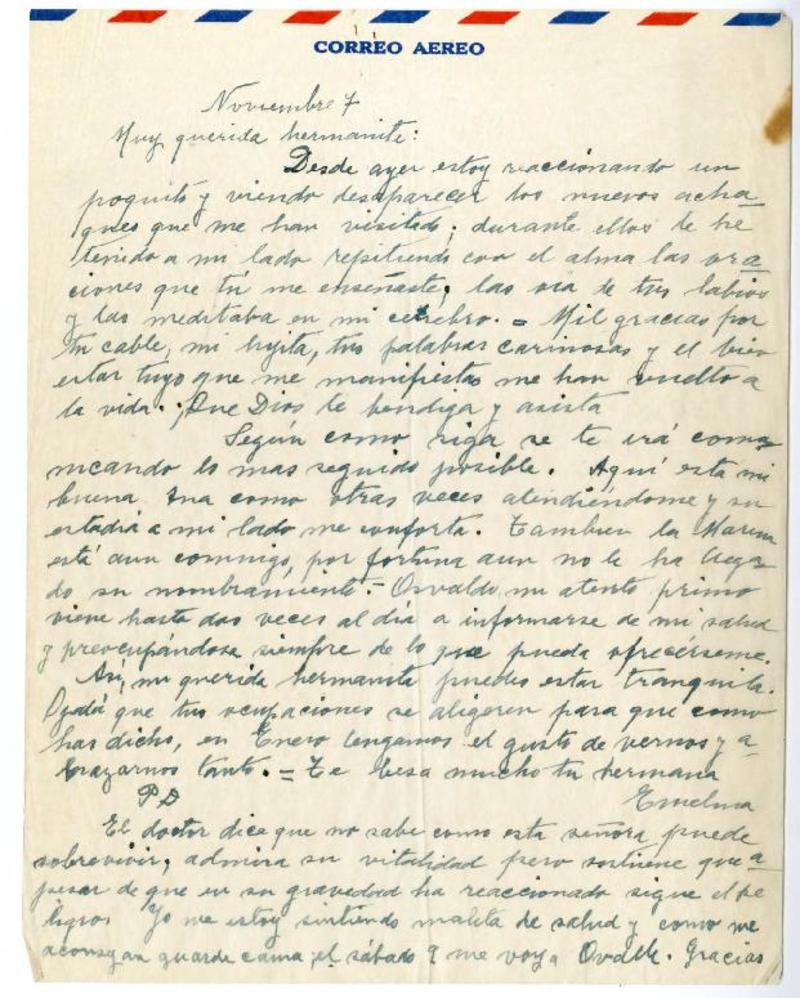 CORREO AEREO
Noviembre 7
Muy querida hermanita:
Desde ayer estoy reaccionando un
poquito y viendo desaparecer los nuevos acha
ques que me han visitado; durante ellos te he
tenido a mi lado repitiendo con el alma las ora
ciones que tú me enseñaste; las oía de tus labios
y las meditaba en mi cerebro. = Mil gracias por
tu cable, mi hijita, tus palabras carinosas y el bien
estar tuyo que me manifiestas me han vuelto a
la vida. ¡Que Dios te bendiga y asista
Según como siga se te irá comu
nicando lo mas seguido posible. Aquí está mi
buena Ana como otras veces atendiéndome y su
estadía a mi lado me conforta. Tambien la Marina
está aun conmigo, por fortuna aun no le ha llega
do su nombramiento. - Osvaldo, mi atento primo
viene hasta dos veces al día a informarse de mi salud
y preocupándose siempre de lo que pueda ofrecérseme.
Así, mi querida hermanita puedes estar tranquila.
Ojalá que tus ocupaciones se aligeren para que como
has dicho, en Enero tengamos el gusto de vernos y a
brazarnos tanto. = Te besa mucho tu hermana
Emelina
PD
El doctor dice que no sabe como esta señora puede
sobrevivir; admira su vitalidad pero sostiene que a
pesar de que en su gravedad ha reaccionado sigue el pe
ligro. Yo me estoy sintiendo malita de salud y como me
aconsejan guarde cama, el sábado 9 me voy a Ovalle. Gracias